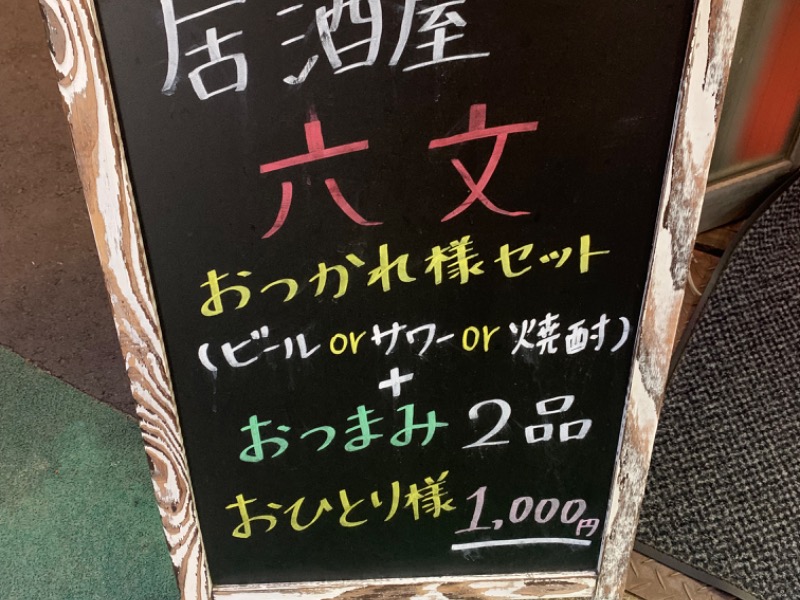 居酒屋
六文
おつかれ様セット
(ビール or サワー or 焼酎)
+
おつまみ 2品
おひとり様 1,000円